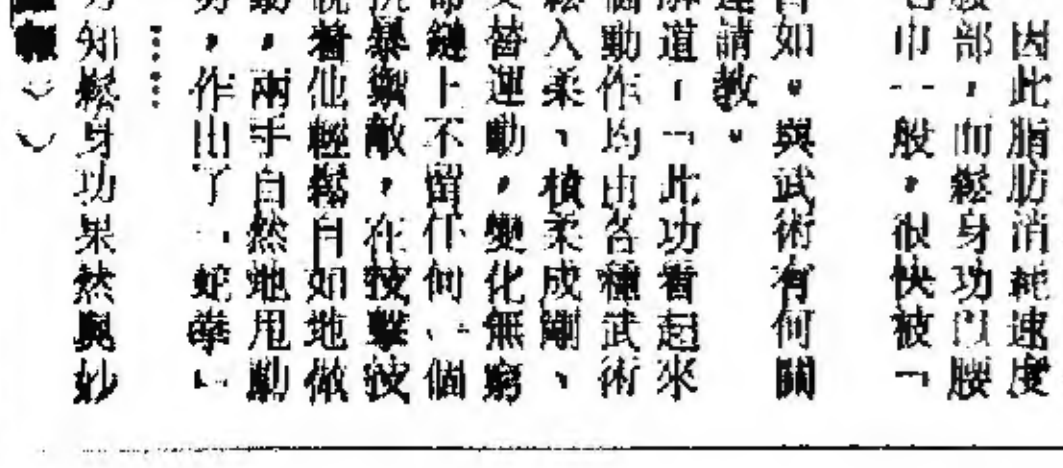 因此脂肪消耗速度
部，而鬆身功以腰
巾一般，很快被「
如。與武術有何關
請教。
道，「此功看起來
動作均由各種武術
入柔、積柔成剛、
替運動，變化無窮
鏈上不留任何一個
暴禦敵，在技擊技
着他輕鬆自如地做
，兩手自然地甩動
，作出了「蛇拳」
……
知鬆身功果然奧妙